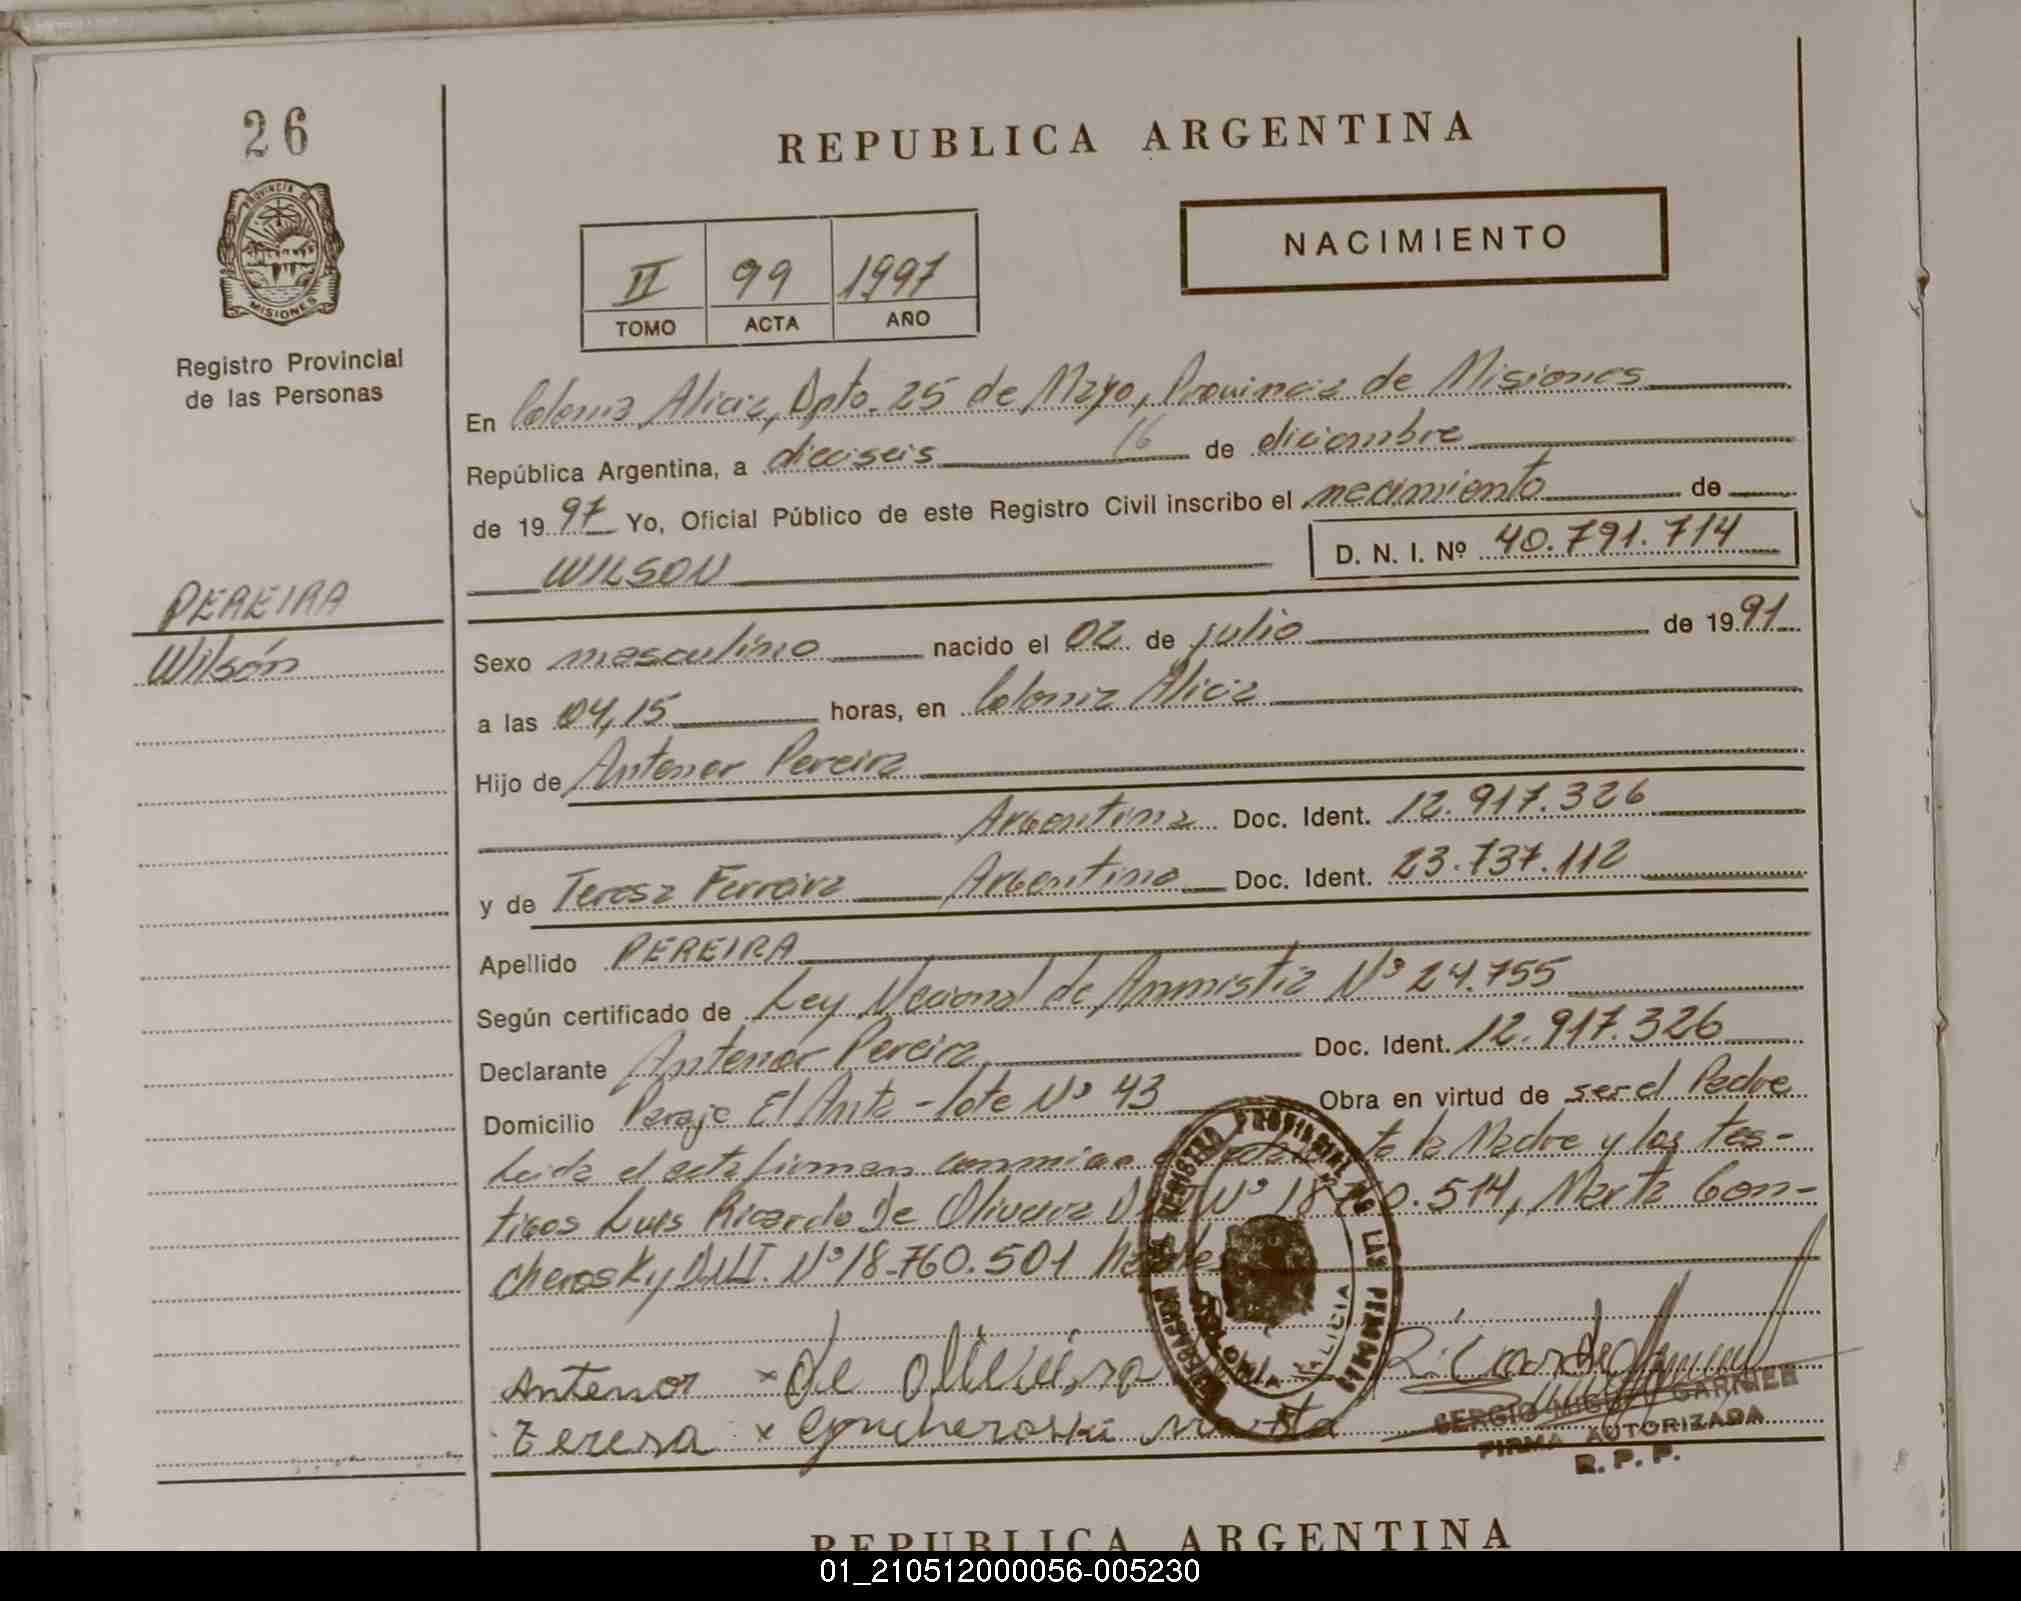 26
PROVINCIA DE
MISIONES
Registro Provincial
de las Personas
PEREIRA
Wilsón
REPUBLICA ARGENTINA
NACIMIENTO
II 99 1997
TOMO ACTA AÑO
En Colonia Alicia, Dpto. 25 de Mayo, Provincia de Misiones
República Argentina, a dieciseis 16 de diciembre
de 1997 Yo, Oficial Público de este Registro Civil inscribo el nacimiento de
WILSON D. N. I. Nº 40.791.714
Sexo masculino nacido el 02 de julio de 1991
a las 04,15 horas, en Colonia Alicia
Hijo de Antenor Pereira
Argentina Doc. Ident. 12.917.326
y de Teresa Ferreira Argentina Doc. Ident. 23.737.112
Apellido PEREIRA
Según certificado de Ley Nacional de Amnistia Nº 24.755
Declarante Antenor Pereira Doc. Ident. 12.917.326
Domicilio Paraje El Anta - lote Nº 43 Obra en virtud de ser el Padre
Leida el acta firman conmigo la Madre y los tes-
tigos Luis Ricardo De Olivera Nº 18.760.514, Marta Gon-
cherosky D.N.I. Nº 18.760.501
REGISTRO PROVINCIAL DE LAS PERSONAS
COLONIA ALICIA
Antenor x de oliveira Ricardo
Teresa x Goncheroski Marta
SERGIO MIGUEL GARNIER
FIRMA AUTORIZADA
R. P. P.
REPUBLICA ARGENTINA
01_210512000056-005230